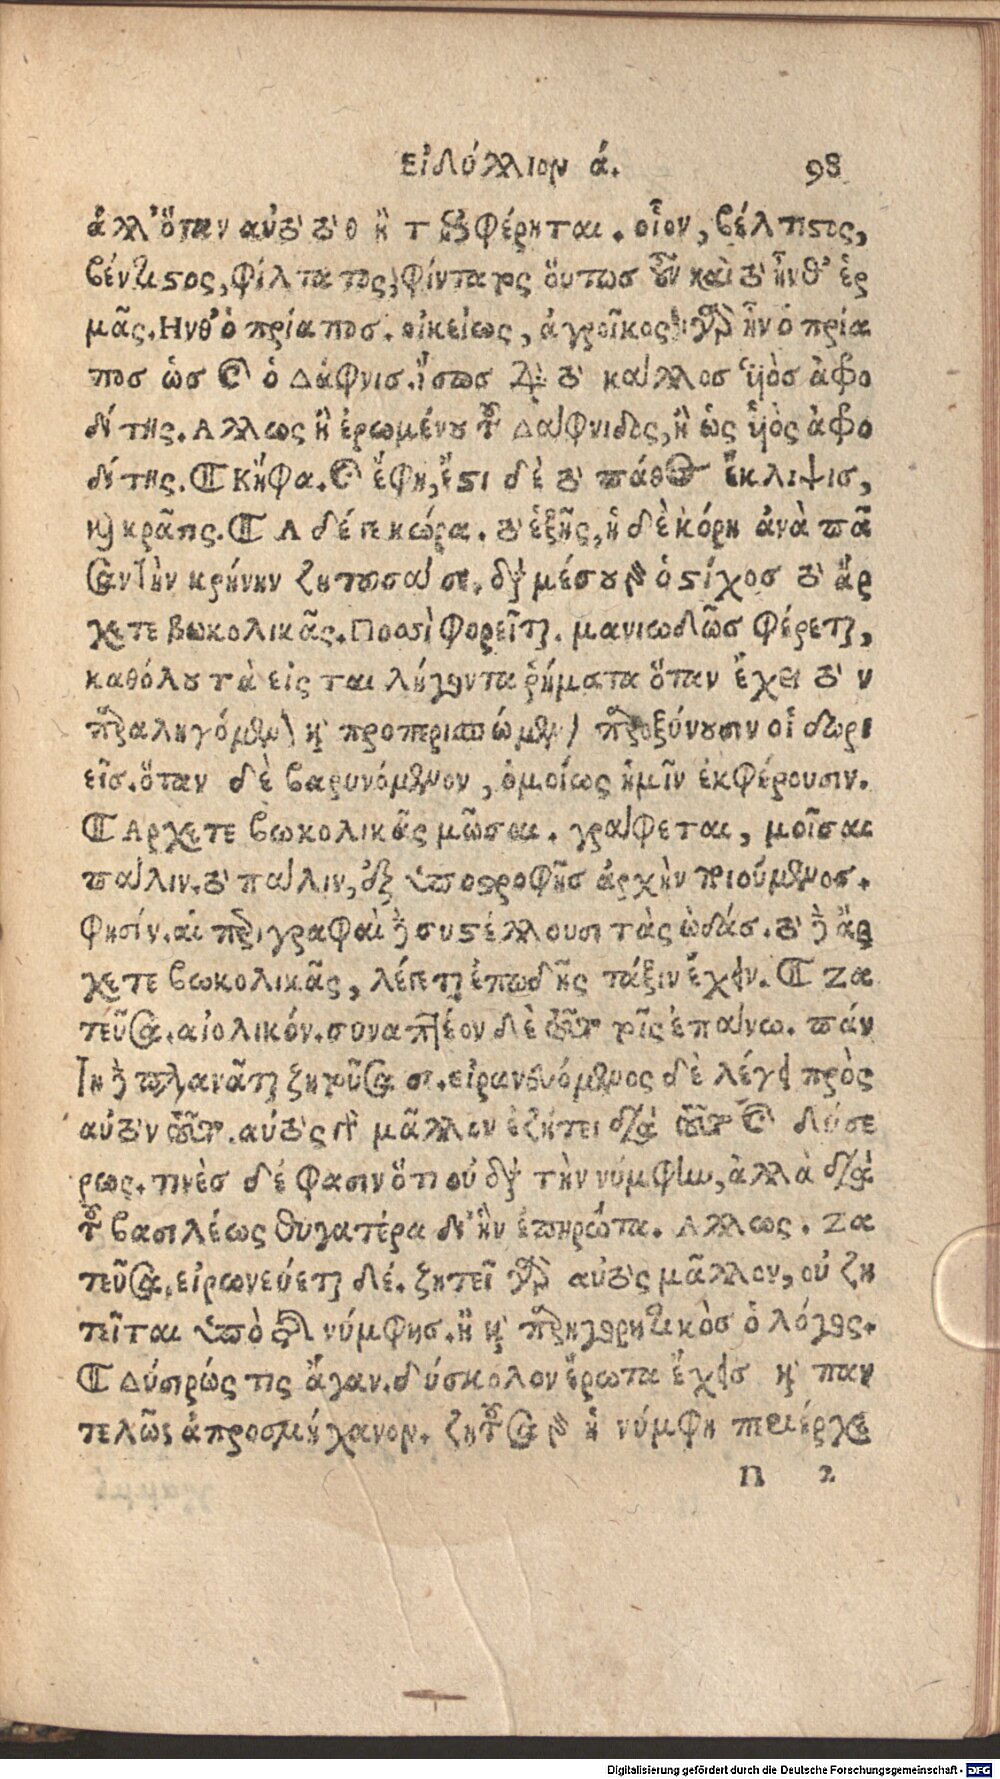 εἰδύλλιον ά. 98
ἀλλ' ὅταν αὐτὸ τὸ θ ἢ τ ἐπιφέρηται. οἷον, βέλτιστος,
βέντιστος, φίλτατος, φίντατος οὕτως οὖν καὶ τὸ ἦνθ' ἑρ
μᾶς. Ηνθ' ὁ πρίαπος. οἰκείως, ἀγροῖκος γὰρ ἦν ὁ πρία
πος ὡς καὶ ὁ Δάφνις. ἴσως διὰ τὸ κάλλος υἱὸς ἀφρο
δίτης. Αλλως ἢ ἐρωμένου τοῦ Δάφνιδος, ἢ ὡς υἱὸς ἀφρο
δίτης. ¶ Κήφα. καὶ ἔφη, ἔστι δὲ τὸ πάθος ἔκλιψις,
καὶ κρᾶσις. ¶ Α δέ τε κώρα. τὸ ἑξῆς, ἡ δὲ κόρη ἀνὰ πᾶ
σαν τὴν κρήνην ζητοῦσαί σε. διὰ μέσου γὰρ ὁ στίχος τὸ ἄρ
χετε βωκολικᾶς. Ποσὶ φορεῖται. μανιωδῶς φέρεται,
καθόλου τὰ εἰς ται λήγοντα ῥήματα ὅταν ἔχει τὸ ν
παραληγόμενον καὶ προπερισπώμενον παροξύνουσιν οἱ δωρι
εῖς. ὅταν δὲ βαρυνόμενον, ὁμοίως ἡμῖν ἐκφέρουσιν.
¶ Αρχετε βωκολικᾶς μῶσαι. γράφεται, μοῖσαι
πάλιν. τὸ πάλιν, ἐξ ὑποστροφῆς ἀρχὴν ποιούμενος.
φησίν. αἱ παραγραφαὶ καὶ συστέλλουσι τὰς ὠδάς. τὸ καὶ ἄρ
χετε βωκολικᾶς, λέγεται ἐπωδῆς τάξιν ἔχειν. ¶ Ζα
τεῦσα. αἰολικόν. συναπτέον δὲ τοῦτο τοῖς ἐπάνω. πάν
τη καὶ πλανᾶται ζητοῦσά σε. εἰρωνευόμενος δὲ λέγει πρὸς
αὐτὸν τοῦτο. αὐτὸς γὰρ μᾶλλον ἐζήτει διὰ τοῦτο καὶ δύσε
ρως. τινὲς δέ φασιν ὅτι οὐ διὰ τὴν νύμφην, ἀλλὰ διὰ
τοῦ βασιλέως θυγατέρα δι' ἣν ἐπηρώτα. Αλλως. Ζα
τεῦσα, εἰρωνεύεται δέ. ζητεῖ γὰρ αὐτὸς μᾶλλον, οὐ ζη
τεῖται ὑπὸ τῆς νύμφης. ἢ καὶ παρηγορητικὸς ὁ λόγος.
¶ Δύσερώς τις ἄγαν. δύσκολον ἔρωτα ἔχεις καὶ παν
τελῶς ἀπροσμήχανον. ζητοῦσα γὰρ ἡ νύμφη περιέρχε
n 2
Digitalisierung gefördert durch die Deutsche Forschungsgemeinschaft - DFG